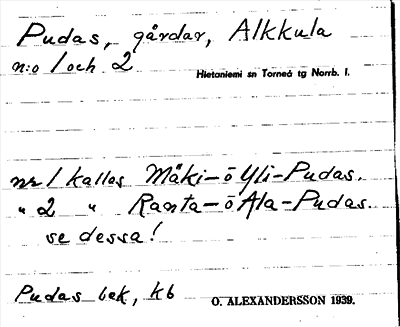 Pudas, gårdar, Alkkula
n:o 1 och 2
Hietaniemi sn Torneå tg Norrb. l.
nr 1 kallas Mäki- o Yli-Pudas.
" 2 " Ranta- o Ala-Pudas.
se dessa!
Pudas bek, kb
O. ALEXANDERSSON 1939.